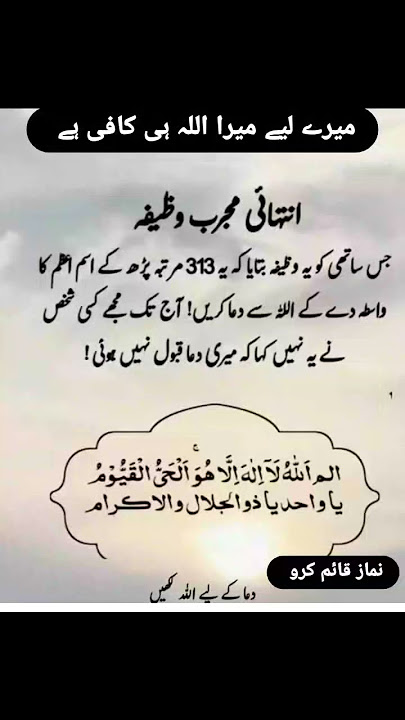 میرے لیے میرا اللہ ہی کافی ہے
انتہائی مجرب وظیفہ
جس ساتھی کو یہ وظیفہ بتایا کہ یہ 313 مرتبہ پڑھ کے اسم اعظم کا
واسطہ دے کے اللہ سے دعا کریں! آج تک مجھے کسی شخص
نے یہ نہیں کہا کہ میری دعا قبول نہیں ہوئی!
الم اَللّٰهُ لَآ اِلٰهَ اِلَّا هُوَ اَلْحَیُّ الْقَیُّوْمُ
یا واحد یا ذو الجلال والاکرام
نماز قائم کرو
دعا کے لیے اللہ لکھیں